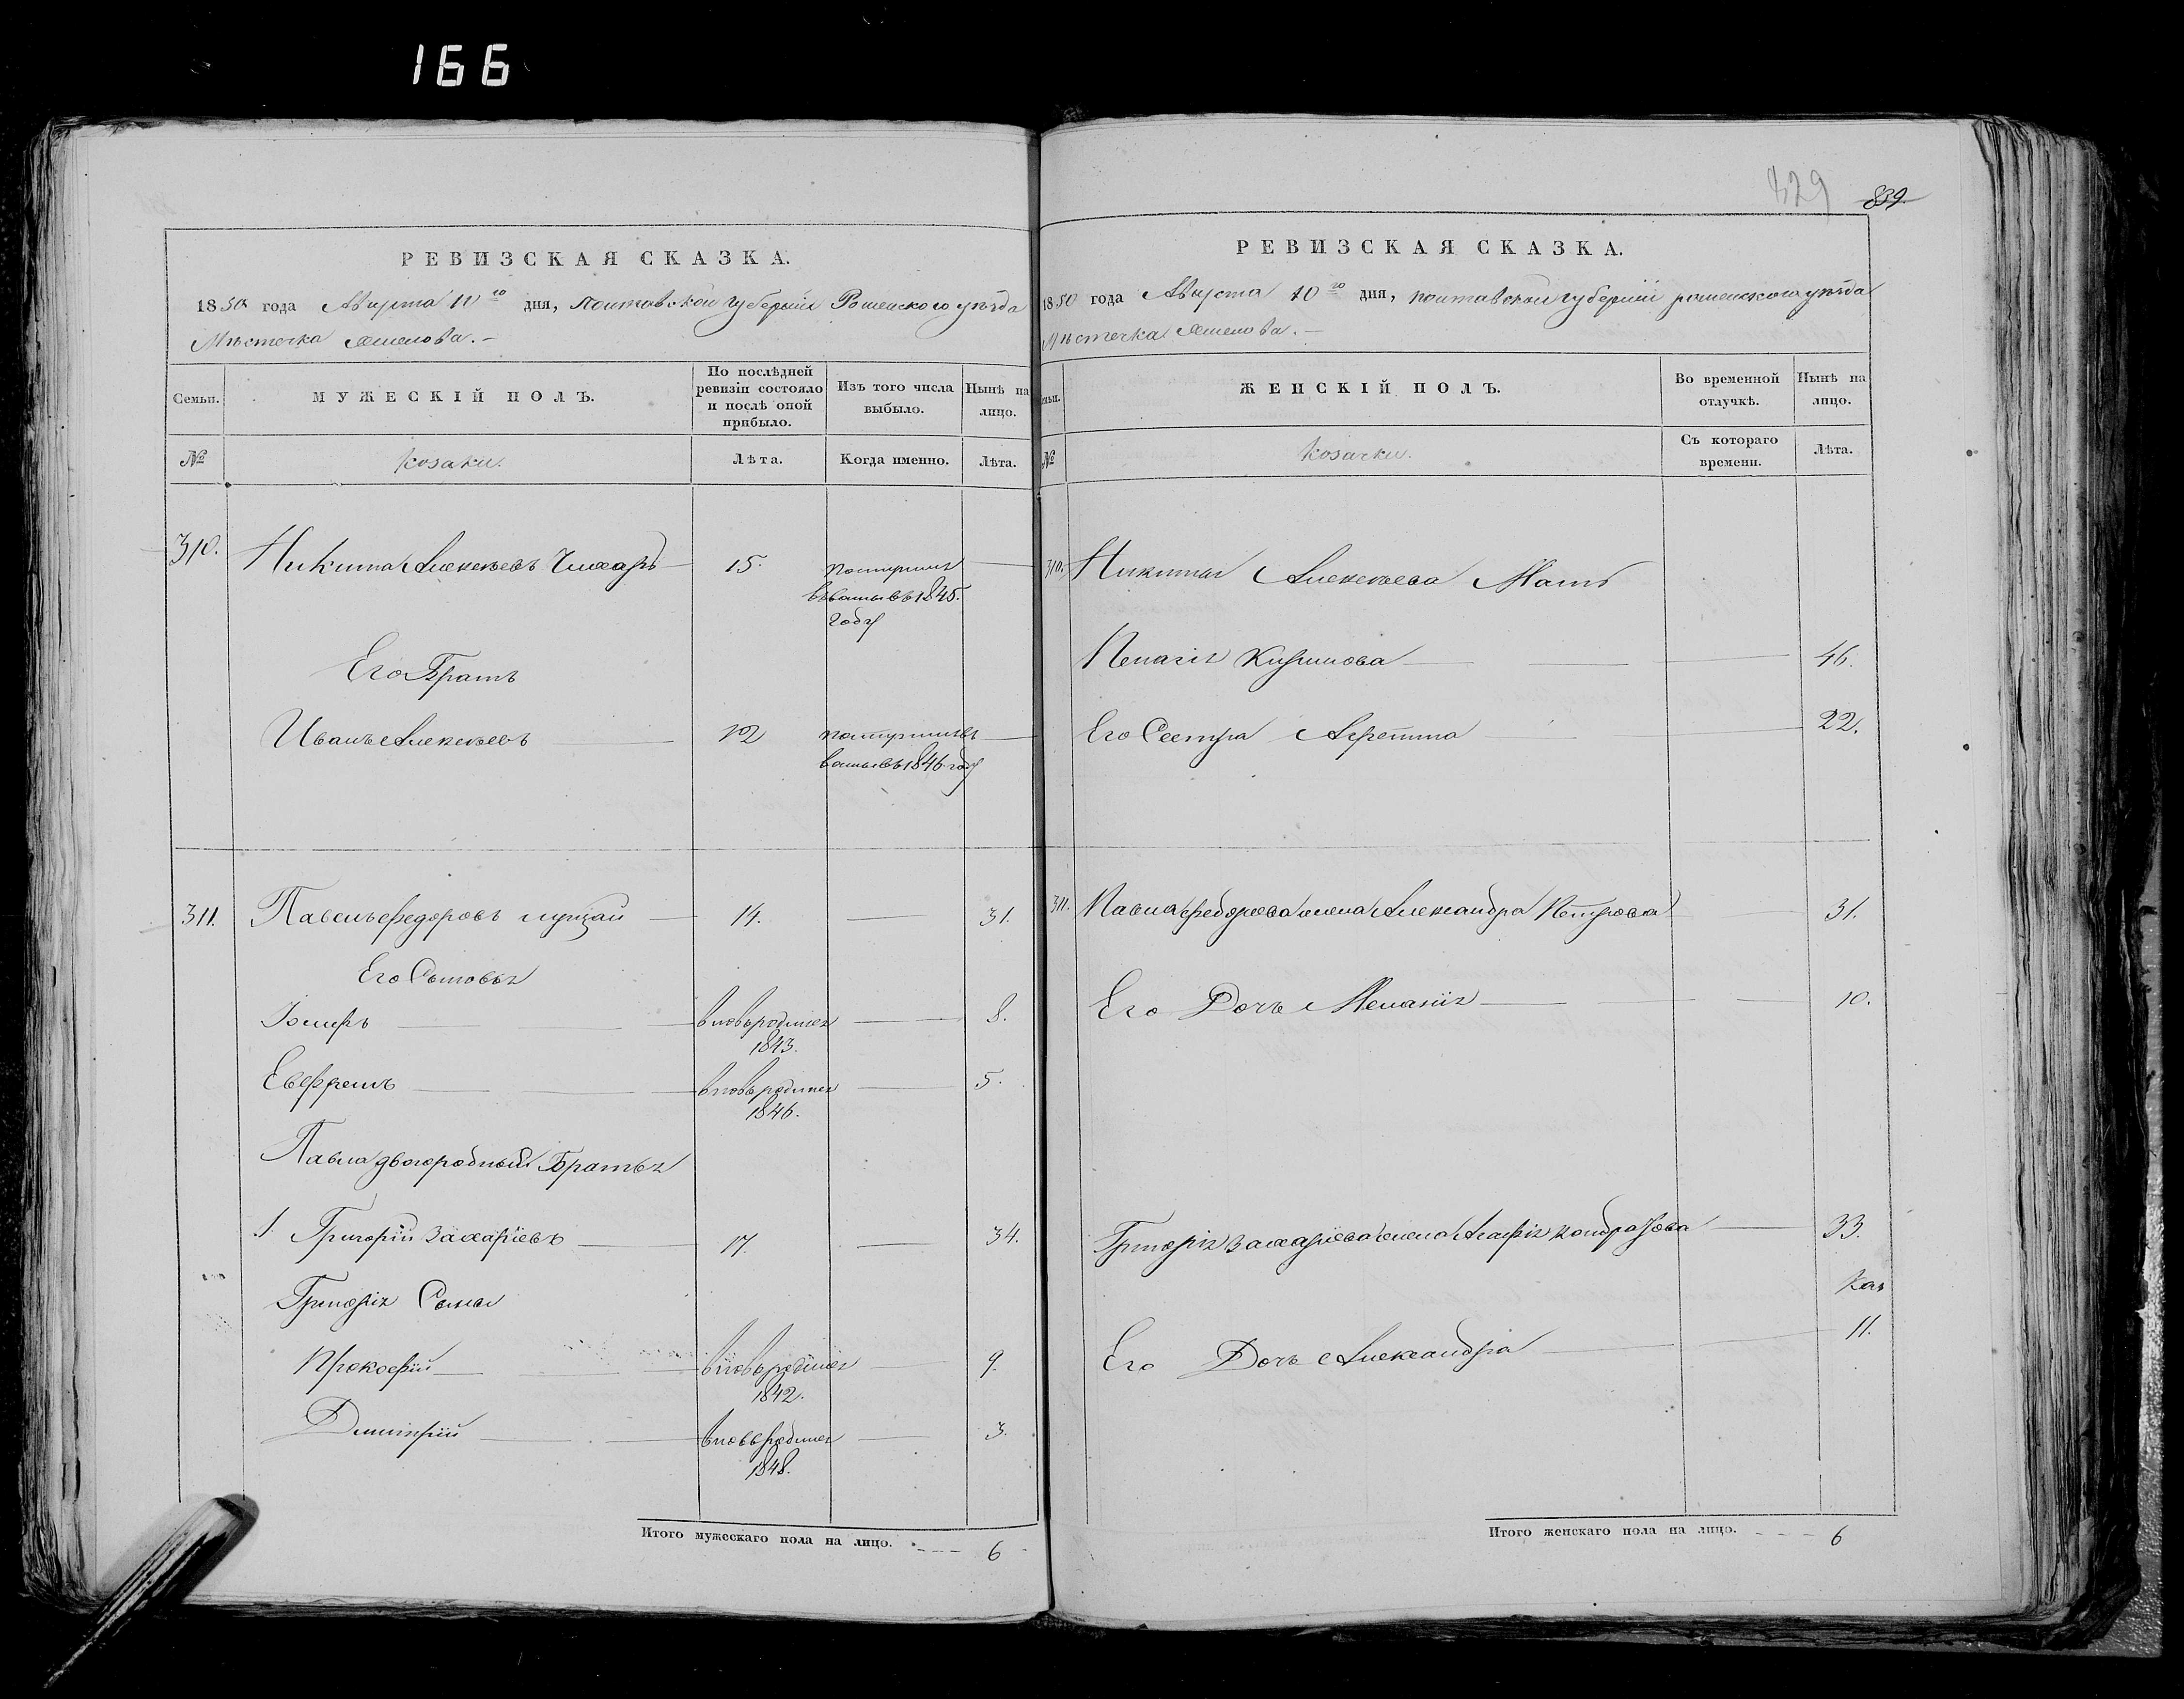 166
329
839
РЕВИЗСКАЯ СКАЗКА.
1850 года Августа 10го дня, Полтавской губерніи Роменского уѣзда
Мѣстечка
Семьи.
МУЖЕСКІЙ ПОЛЪ.
По послѣдней ревизіи состояло и послѣ оной прибыло.
Изъ того числа выбыло.
Нынѣ на лицо.
№
козаки.
Лѣта.
Когда именно.
Лѣта.
310. Никита Алексѣевъ 15.
1845.
году
Его Братъ
Иванъ Алексѣевъ 12
1846 году
311. Павелъ Федоровъ 14. 31.
Его Сыновья
Іосифъ вновьродился 8.
1843.
Евфремъ вновьродился 5.
1846.
Павла двоюродный Братья
1 Григорій Захаріевъ 17. 34.
Григорія Сыны
Прокофій вновьродился 9.
1842.
Димитрій вновьродился 3.
1848.
Итого мужескаго пола на лицо. 6
РЕВИЗСКАЯ СКАЗКА.
1850 года Августа 10го дня, полтавской губерніи роменского уѣзда
Мѣстечка
Семьи.
ЖЕНСКІЙ ПОЛЪ.
Во временной отлучкѣ.
Нынѣ на лицо.
№
козачки.
Съ котораго времени.
Лѣта.
310. Никиты Алексѣева Мать
Пелагія 46.
Его Сестра 22.
311. Павла федорова жена Александра Петрова 31.
Его Дочь Меланія 10.
Григорія Захаріева жена Агафія 33.
Его Дочь Александра 11.
Итого женскаго пола на лицо. 6